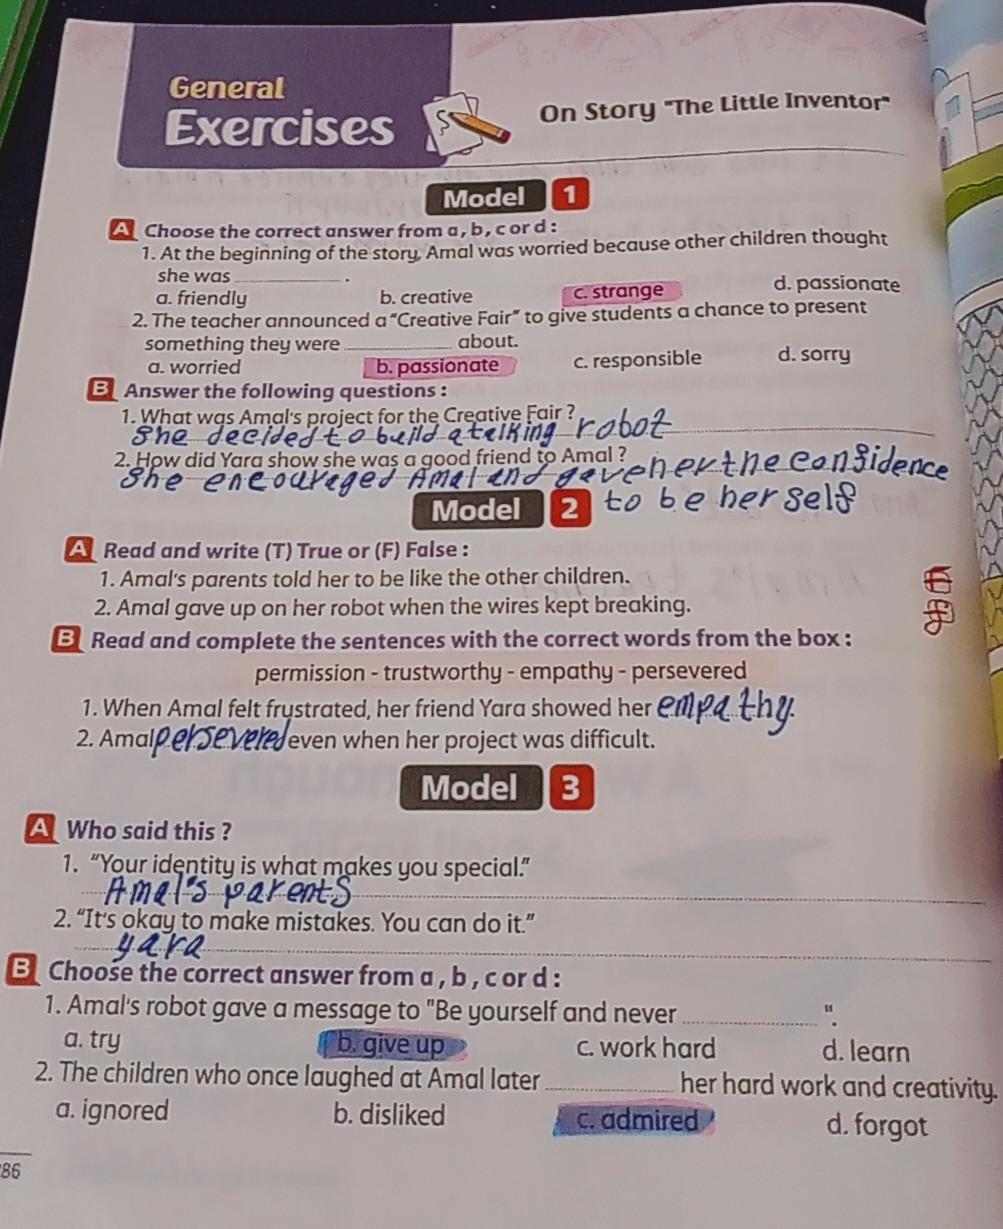 General
Exercises
On Story "The Little Inventor"
Model 1
A Choose the correct answer from a, b, c or d :
1. At the beginning of the story, Amal was worried because other children thought
she was ............ .
a. friendly b. creative c. strange d. passionate
2. The teacher announced a "Creative Fair" to give students a chance to present
something they were ............ about.
a. worried b. passionate c. responsible d. sorry
B Answer the following questions :
1. What was Amal's project for the Creative Fair ?
She decided to build a talking robot
2. How did Yara show she was a good friend to Amal ?
She encouraged Amal and gave her the confidence
to be her self
Model 2
A Read and write (T) True or (F) False :
1. Amal's parents told her to be like the other children.
2. Amal gave up on her robot when the wires kept breaking.
B Read and complete the sentences with the correct words from the box :
permission - trustworthy - empathy - persevered
1. When Amal felt frustrated, her friend Yara showed her empathy.
2. Amal persevered even when her project was difficult.
Model 3
A Who said this ?
1. "Your identity is what makes you special."
Amal's parents
2. "It's okay to make mistakes. You can do it."
yara
B Choose the correct answer from a, b, c or d :
1. Amal's robot gave a message to "Be yourself and never ............ ".
a. try b. give up c. work hard d. learn
2. The children who once laughed at Amal later ............ her hard work and creativity.
a. ignored b. disliked c. admired d. forgot
86